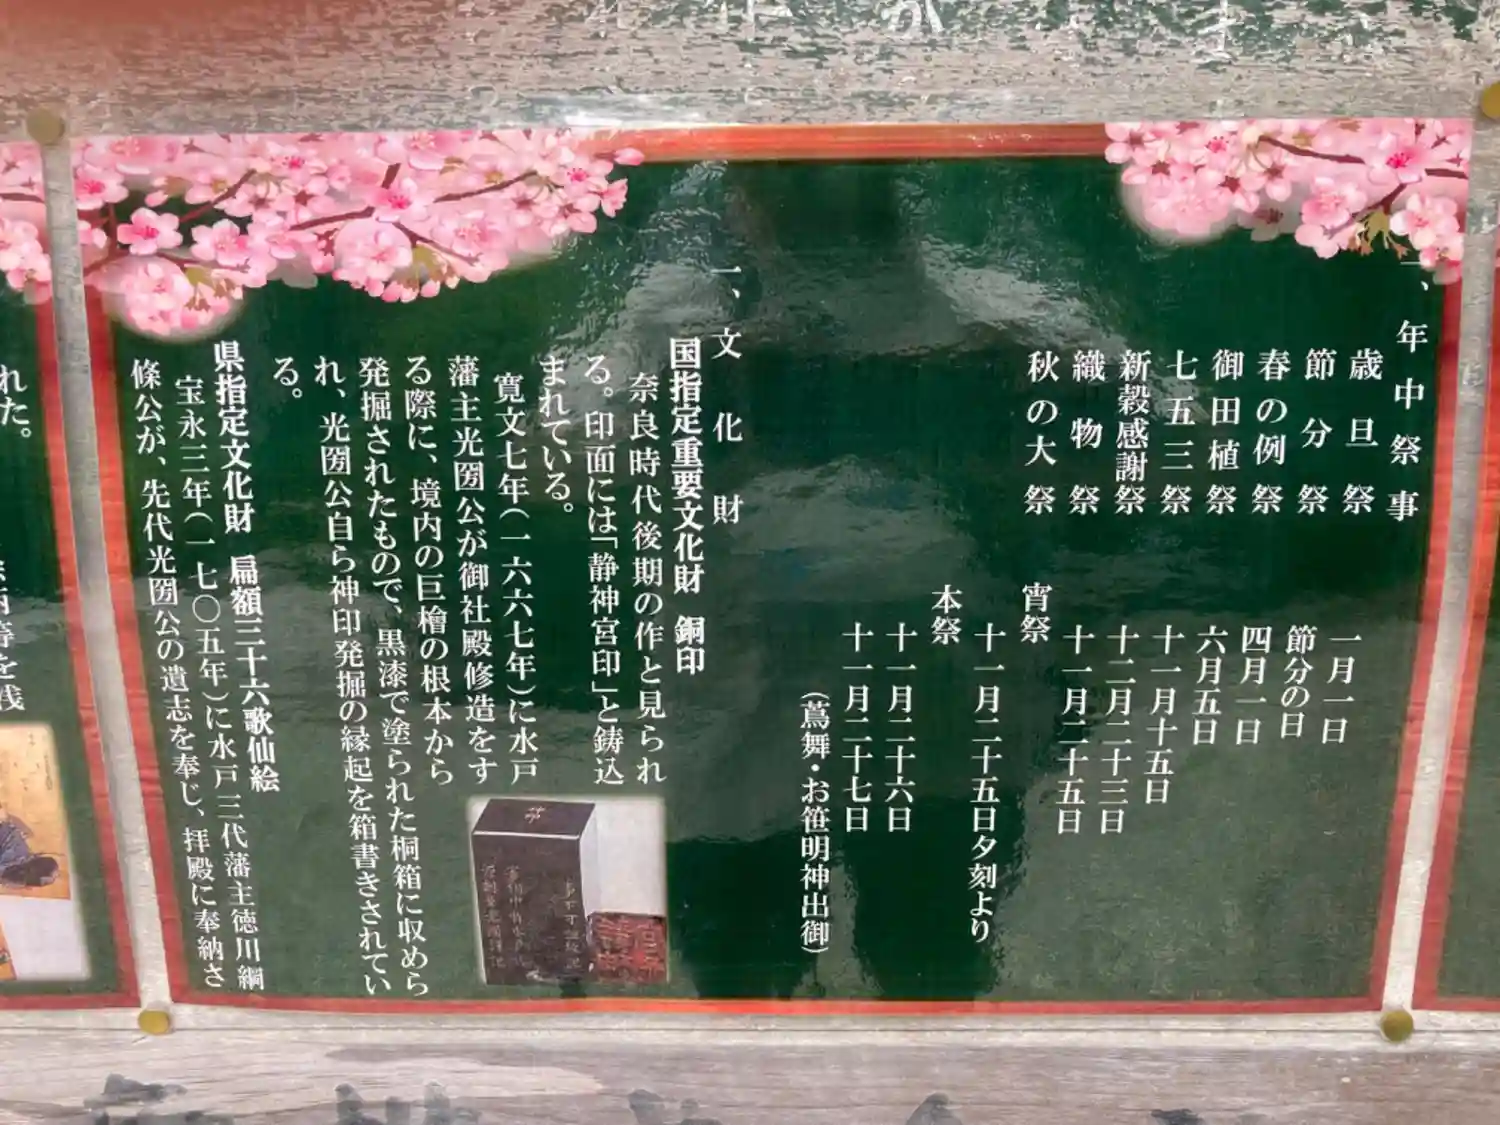 一、年中祭事
歳旦祭 一月一日
節分祭 節分の日
春の例祭 四月一日
御田植祭 六月五日
七五三祭 十一月十五日
新穀感謝祭 十二月二十三日
織物祭 十一月二十五日
秋の大祭 宵祭
十一月二十五日夕刻より
本祭
十一月二十六日
十一月二十七日
(蔦舞・お笹明神出御)
一、文化財
国指定重要文化財 銅印
奈良時代後期の作と見られ
る。印面には「静神宮印」と鋳込
まれている。
寛文七年(一六六七年)に水戸
藩主光圀公が御社殿修造をす
る際に、境内の巨檜の根本から
発掘されたもので、黒漆で塗られた桐箱に収めら
れ、光圀公自ら神印発掘の縁起を箱書きされてい
る。
県指定文化財 扁額三十六歌仙絵
宝永三年(一七〇五年)に水戸三代藩主徳川綱
條公が、先代光圀公の遺志を奉じ、拝殿に奉納さ
れた。